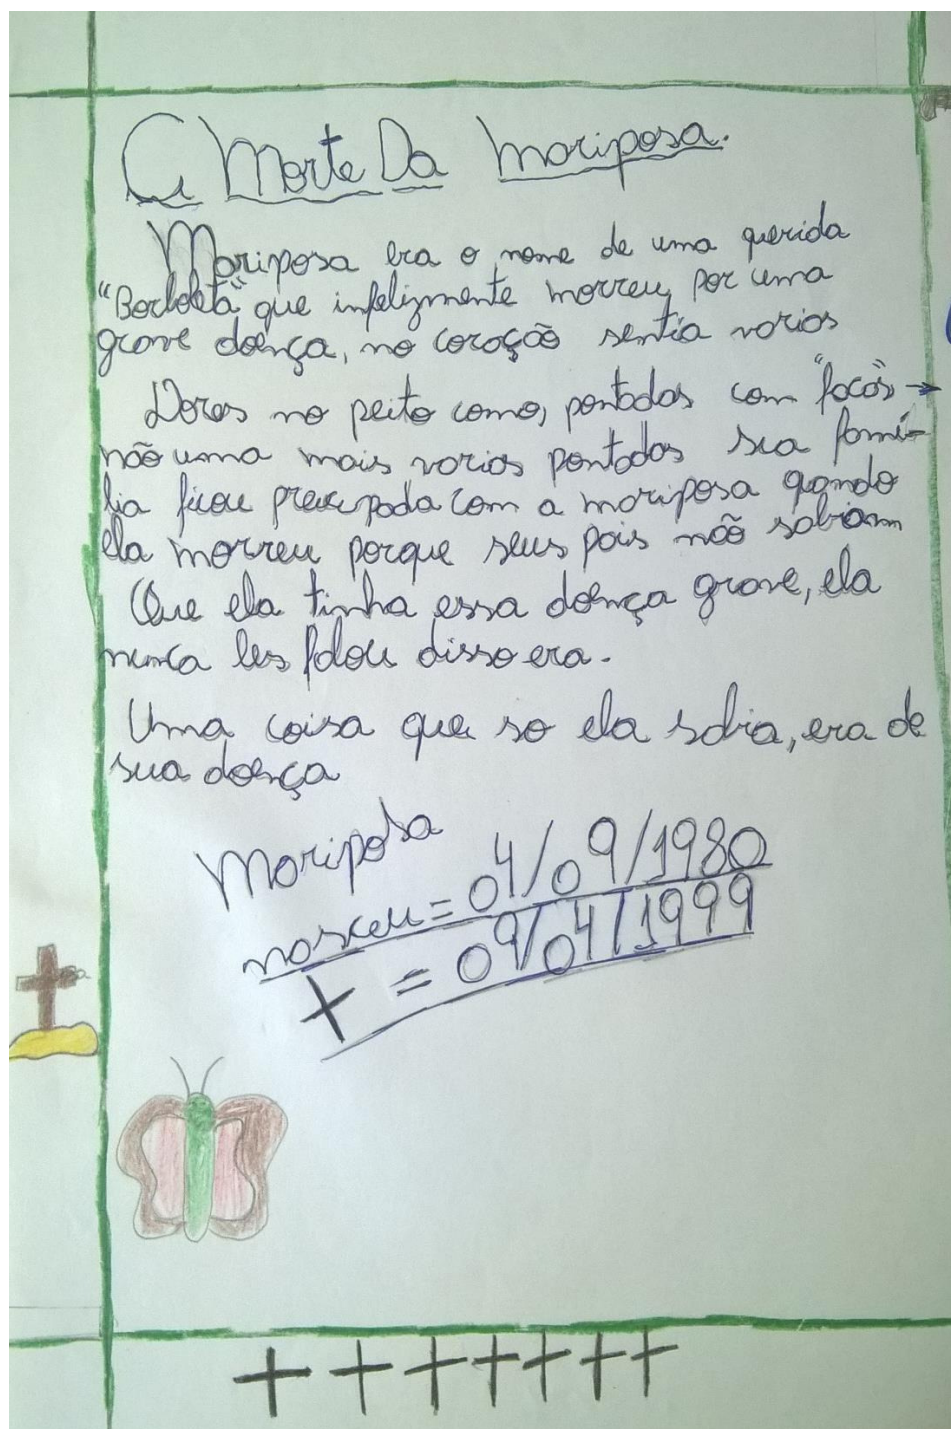 A Morte Da Mariposa.
Mariposa era o nome de uma querida
"Borboleta" que infelizmente morreu, por uma
grave doença, no coração sentia varios
Dores no peito como, pontadas com "facas" →
não uma mais varias pontadas sua famí-
lia ficou preucupada com a mariposa quando
ela morreu porque seus pais não sabiam
Que ela tinha essa doença grave, ela
nunca les falou disso era.
Uma coisa que so ela sabia, era de
sua doença
Mariposa
nasceu = 04/09/1980
† = 09/04/1999